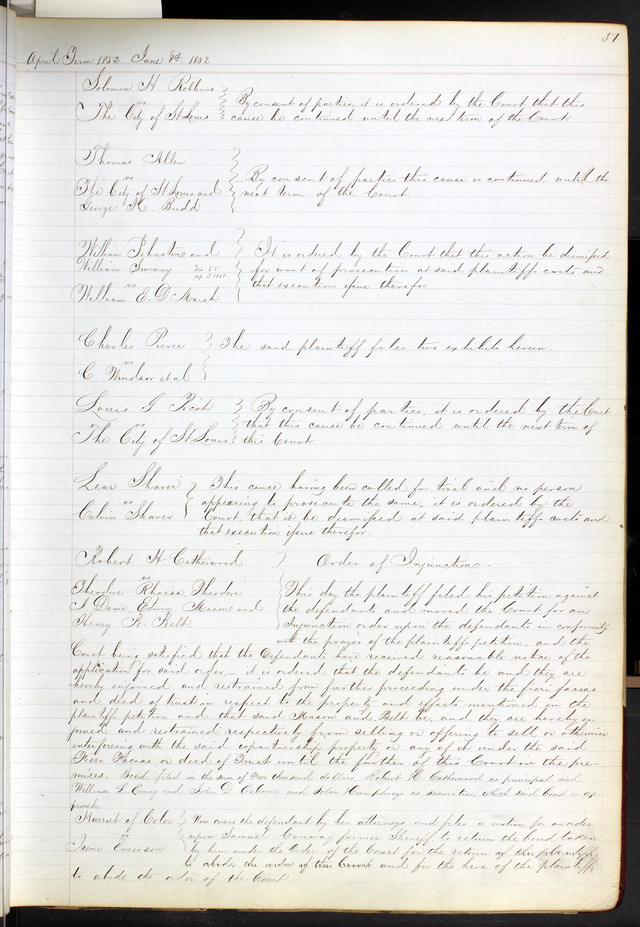 57
April Term 1852 June 8th 1852
Solomon H Robbins
vs
The City of St Louis
By consent of parties, it is ordered by the Court that this
cause be continued until the next term of the Court
Thomas Allen
vs
The City of St Louis and
George K. Budd
By consent of parties this cause is continued until the
next term of the Court.
William Johnston and
William
vs
William E.
It is ordered by the Court that this action be dismissed
for want of prosecution at said plaintiffs costs and
that execution issue therefor
Charles Pierce
vs
C. Windsor et al
The said plaintiff files two exhibits herein.
Louis G Picot
vs
The City of St Louis
By consent of parties, it is ordered by the Court
that this cause be continued until the next term of
this Court
Lear Shaver
vs
Calvin Shaver
This cause having been called for trial and no person
appearing to prosecute the same, it is ordered by the
Court, that it be dismissed at said plaintiffs costs and
that execution issue therefor.
Robert H Catherwood
vs
Theodore Theodore
S Dame, Edwin Mason and
Henry Belt.
Order of Injunction -
This day the plaintiff filed his petition against
the defendants and moved the Court for an
Injunction order upon the defendants in conformity
with the prayer of the plaintiffs petition and the
Court being satisfied that the Defendants have received reasonable notice of the
application for said order - it is ordered that the defendants be and they are
hereby enjoined and restrained from further proceeding under the fieri facias
and deed of trust in respect to the property and effects mentioned in the
plaintiffs petition and that said Mason and Belt be, and they are hereby en
joined and restrained respectively from selling or offering to sell or otherwise
interfering with the said copartnership property or any of it under the said
Fieri Facias or deed of Trust until the further of this Court in the pre-
mises. Bond filed in the sum of thousand dollars Robert H. Catherwood as principal and
William L Ewing and John D. Osborne and John Humphreys as securities which said bond is ap-
proved
Harriet of Color
vs
Irene Emerson
Now comes the defendant by her attorneys and files a motion for an order
upon Samuel Conway former Sheriff to return the bond taken
by him under the Order of the Court for the return of the plaintiffs
to abide the order of this Court and for the hire of the plaintiffs
to abide the order of the Court